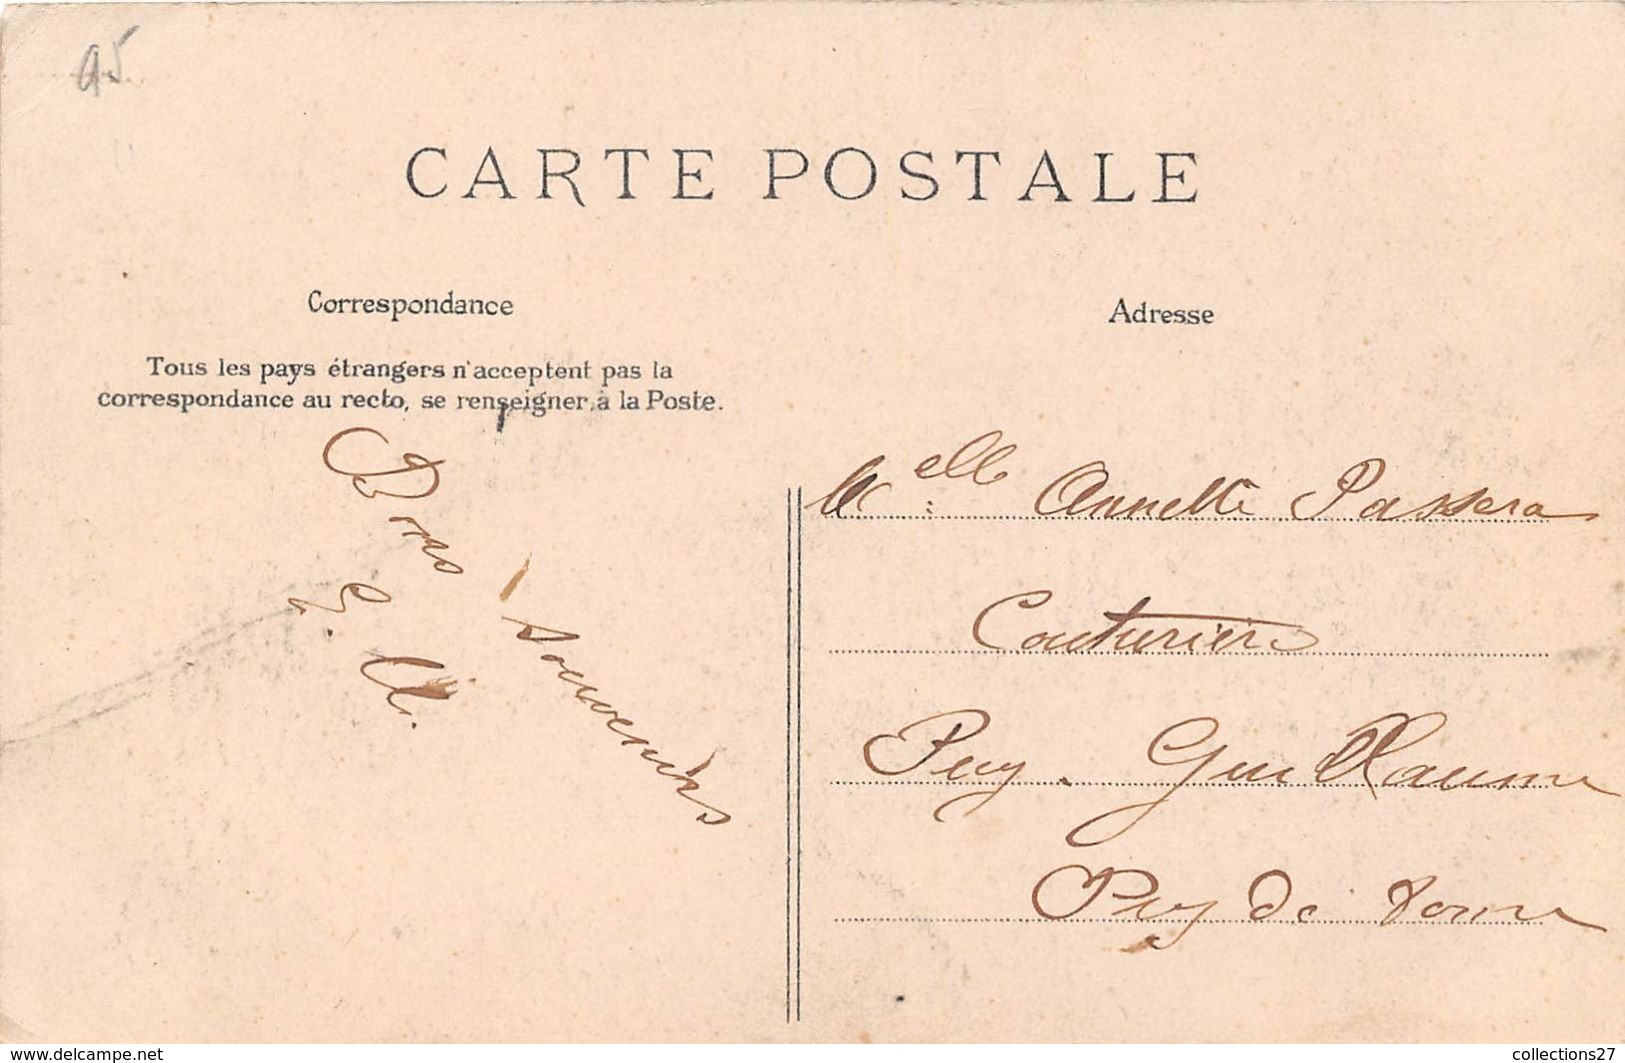 95
CARTE POSTALE
Correspondance
Tous les pays étrangers n'acceptent pas la
correspondance au recto, se renseigner à la Poste.
Bons souvenirs
Adresse
Melle Annette Passera
Couturière
Puy-Guillaume
Puy de Dome
www.delcampe.net
collections27